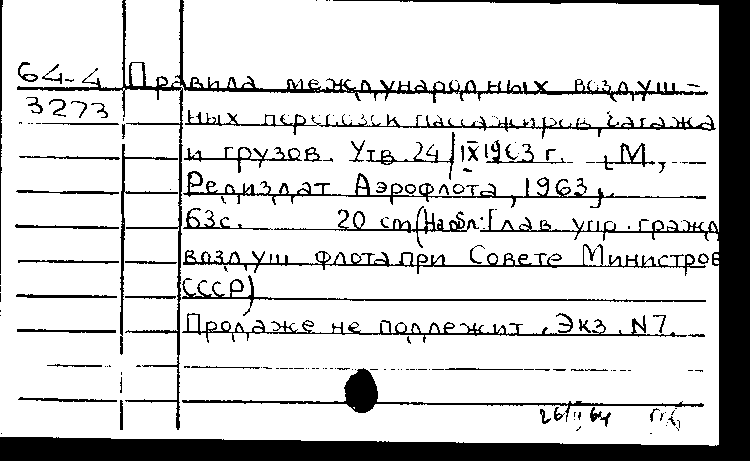 64-4 Правила международных воздуш-
3273 ных перевозок пассажиров, багажа
и грузов. Утв. 24/IX 1963 г. [М.,
Редиздат Аэрофлота, 1963].
63с. 20 cm (На обл: Глав. упр. гражд
воздуш флота при Совете Министров
СССР)
Продаже не подлежит. Экз. N7.
26/II 64